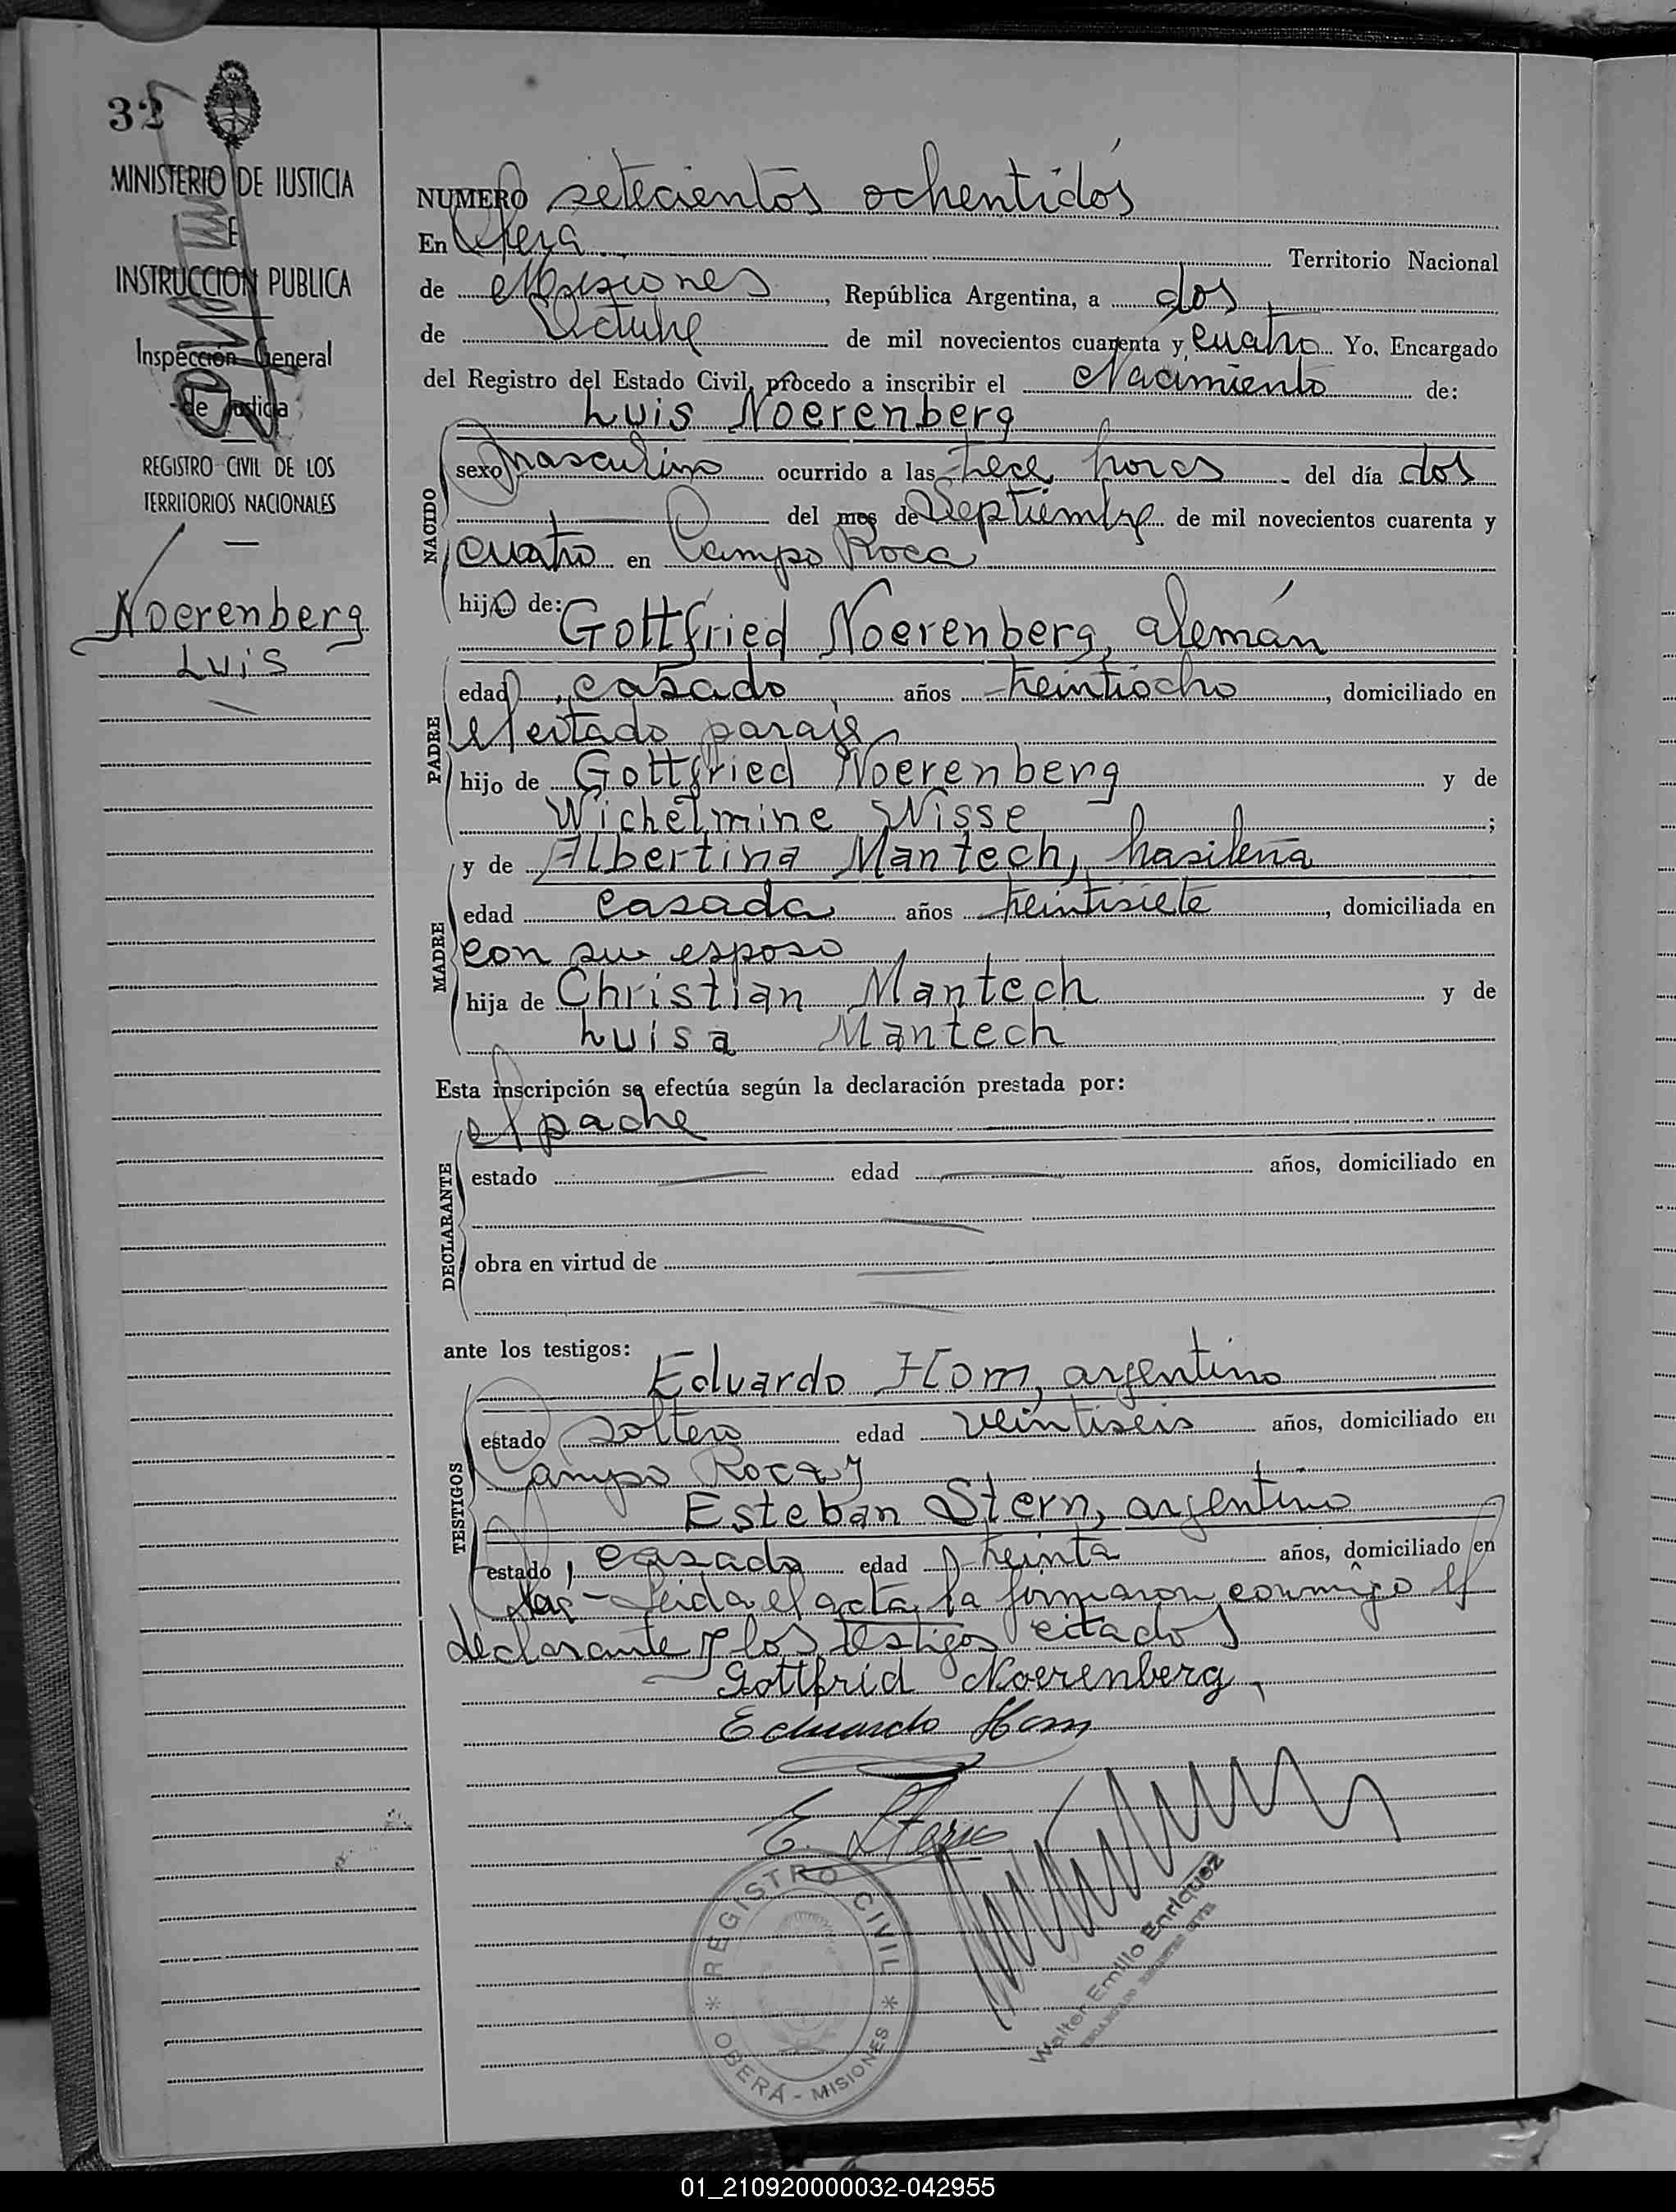 32
MINISTERIO DE JUSTICIA
E
INSTRUCCION PUBLICA
Inspección General
de Justicia
REGISTRO CIVIL DE LOS
TERRITORIOS NACIONALES
Noerenberg
Luis
NUMERO setecientos ochentidós
En Oberá Territorio Nacional
de Misiones, República Argentina, a dos
de Octubre de mil novecientos cuarenta y cuatro Yo, Encargado
del Registro del Estado Civil, procedo a inscribir el Nacimiento de:
Luis Noerenberg
NACIDO
sexo masculino ocurrido a las trece horas del día dos
del mes de Septiembre de mil novecientos cuarenta y
cuatro en Campo Roca
hijo de:
Gottfried Noerenberg, alemán
PADRE
edad, casado años treintiocho, domiciliado en
el citado paraje
hijo de Gottfried Noerenberg y de
Wichelmine Wisse;
y de Albertina Mantech, brasileña
MADRE
edad casada años treintisiete, domiciliada en
con su esposo
hija de Christian Mantech y de
Luisa Mantech
Esta inscripción se efectúa según la declaración prestada por:
el padre
DECLARANTE
estado edad años, domiciliado en
obra en virtud de
ante los testigos:
Eduardo Hom, argentino
TESTIGOS
estado soltero edad veintiseis años, domiciliado en
Campo Roca y
Esteban Stern, argentino
estado, casado edad treinta años, domiciliado en
Leida el acta la firmaron conmigo el
declarante y los testigos citados
Gottfrid Noerenberg,
Eduardo Hom
E. Stern
REGISTRO CIVIL
OBERÁ - MISIONES
Walter Emilio Enriquez
01_210920000032-042955